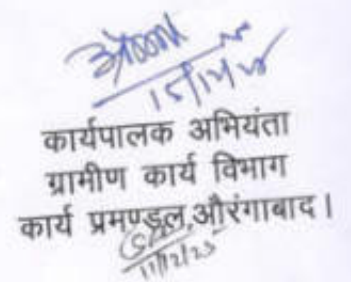 कार्यपालक अभियंता
ग्रामीण कार्य विभाग
कार्य प्रमण्डल,औरंगाबाद।
11/12/25